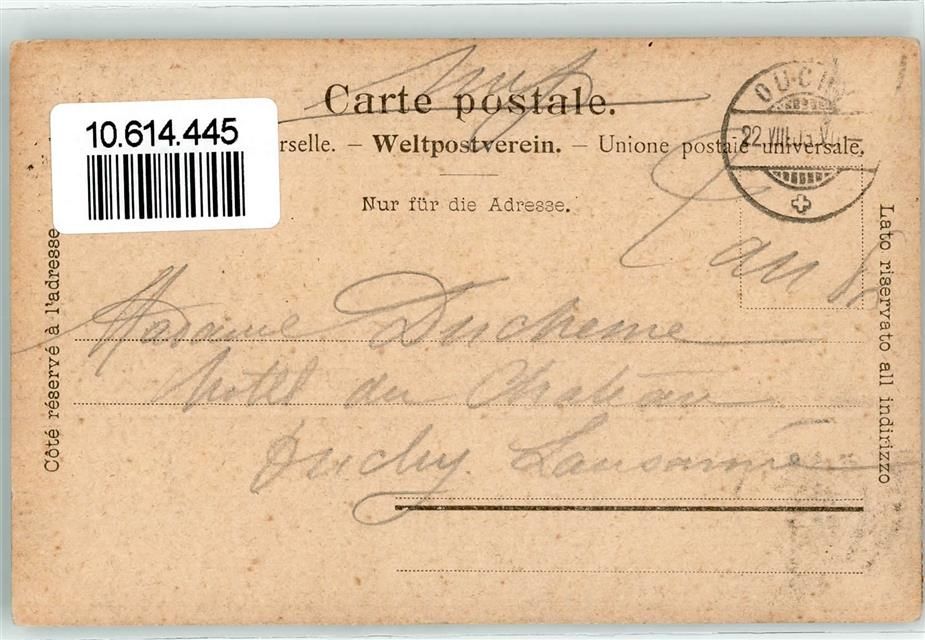 Carte postale.
10.614.445
rselle. — Weltpostverein. — Unione postale universale.
Nur für die Adresse.
OUCH
22.VIII
Côté réservé à l'adresse
Lato riservato all indirizzo
Madame Duchesne
Hôtel du Château
Ouchy Lausanne